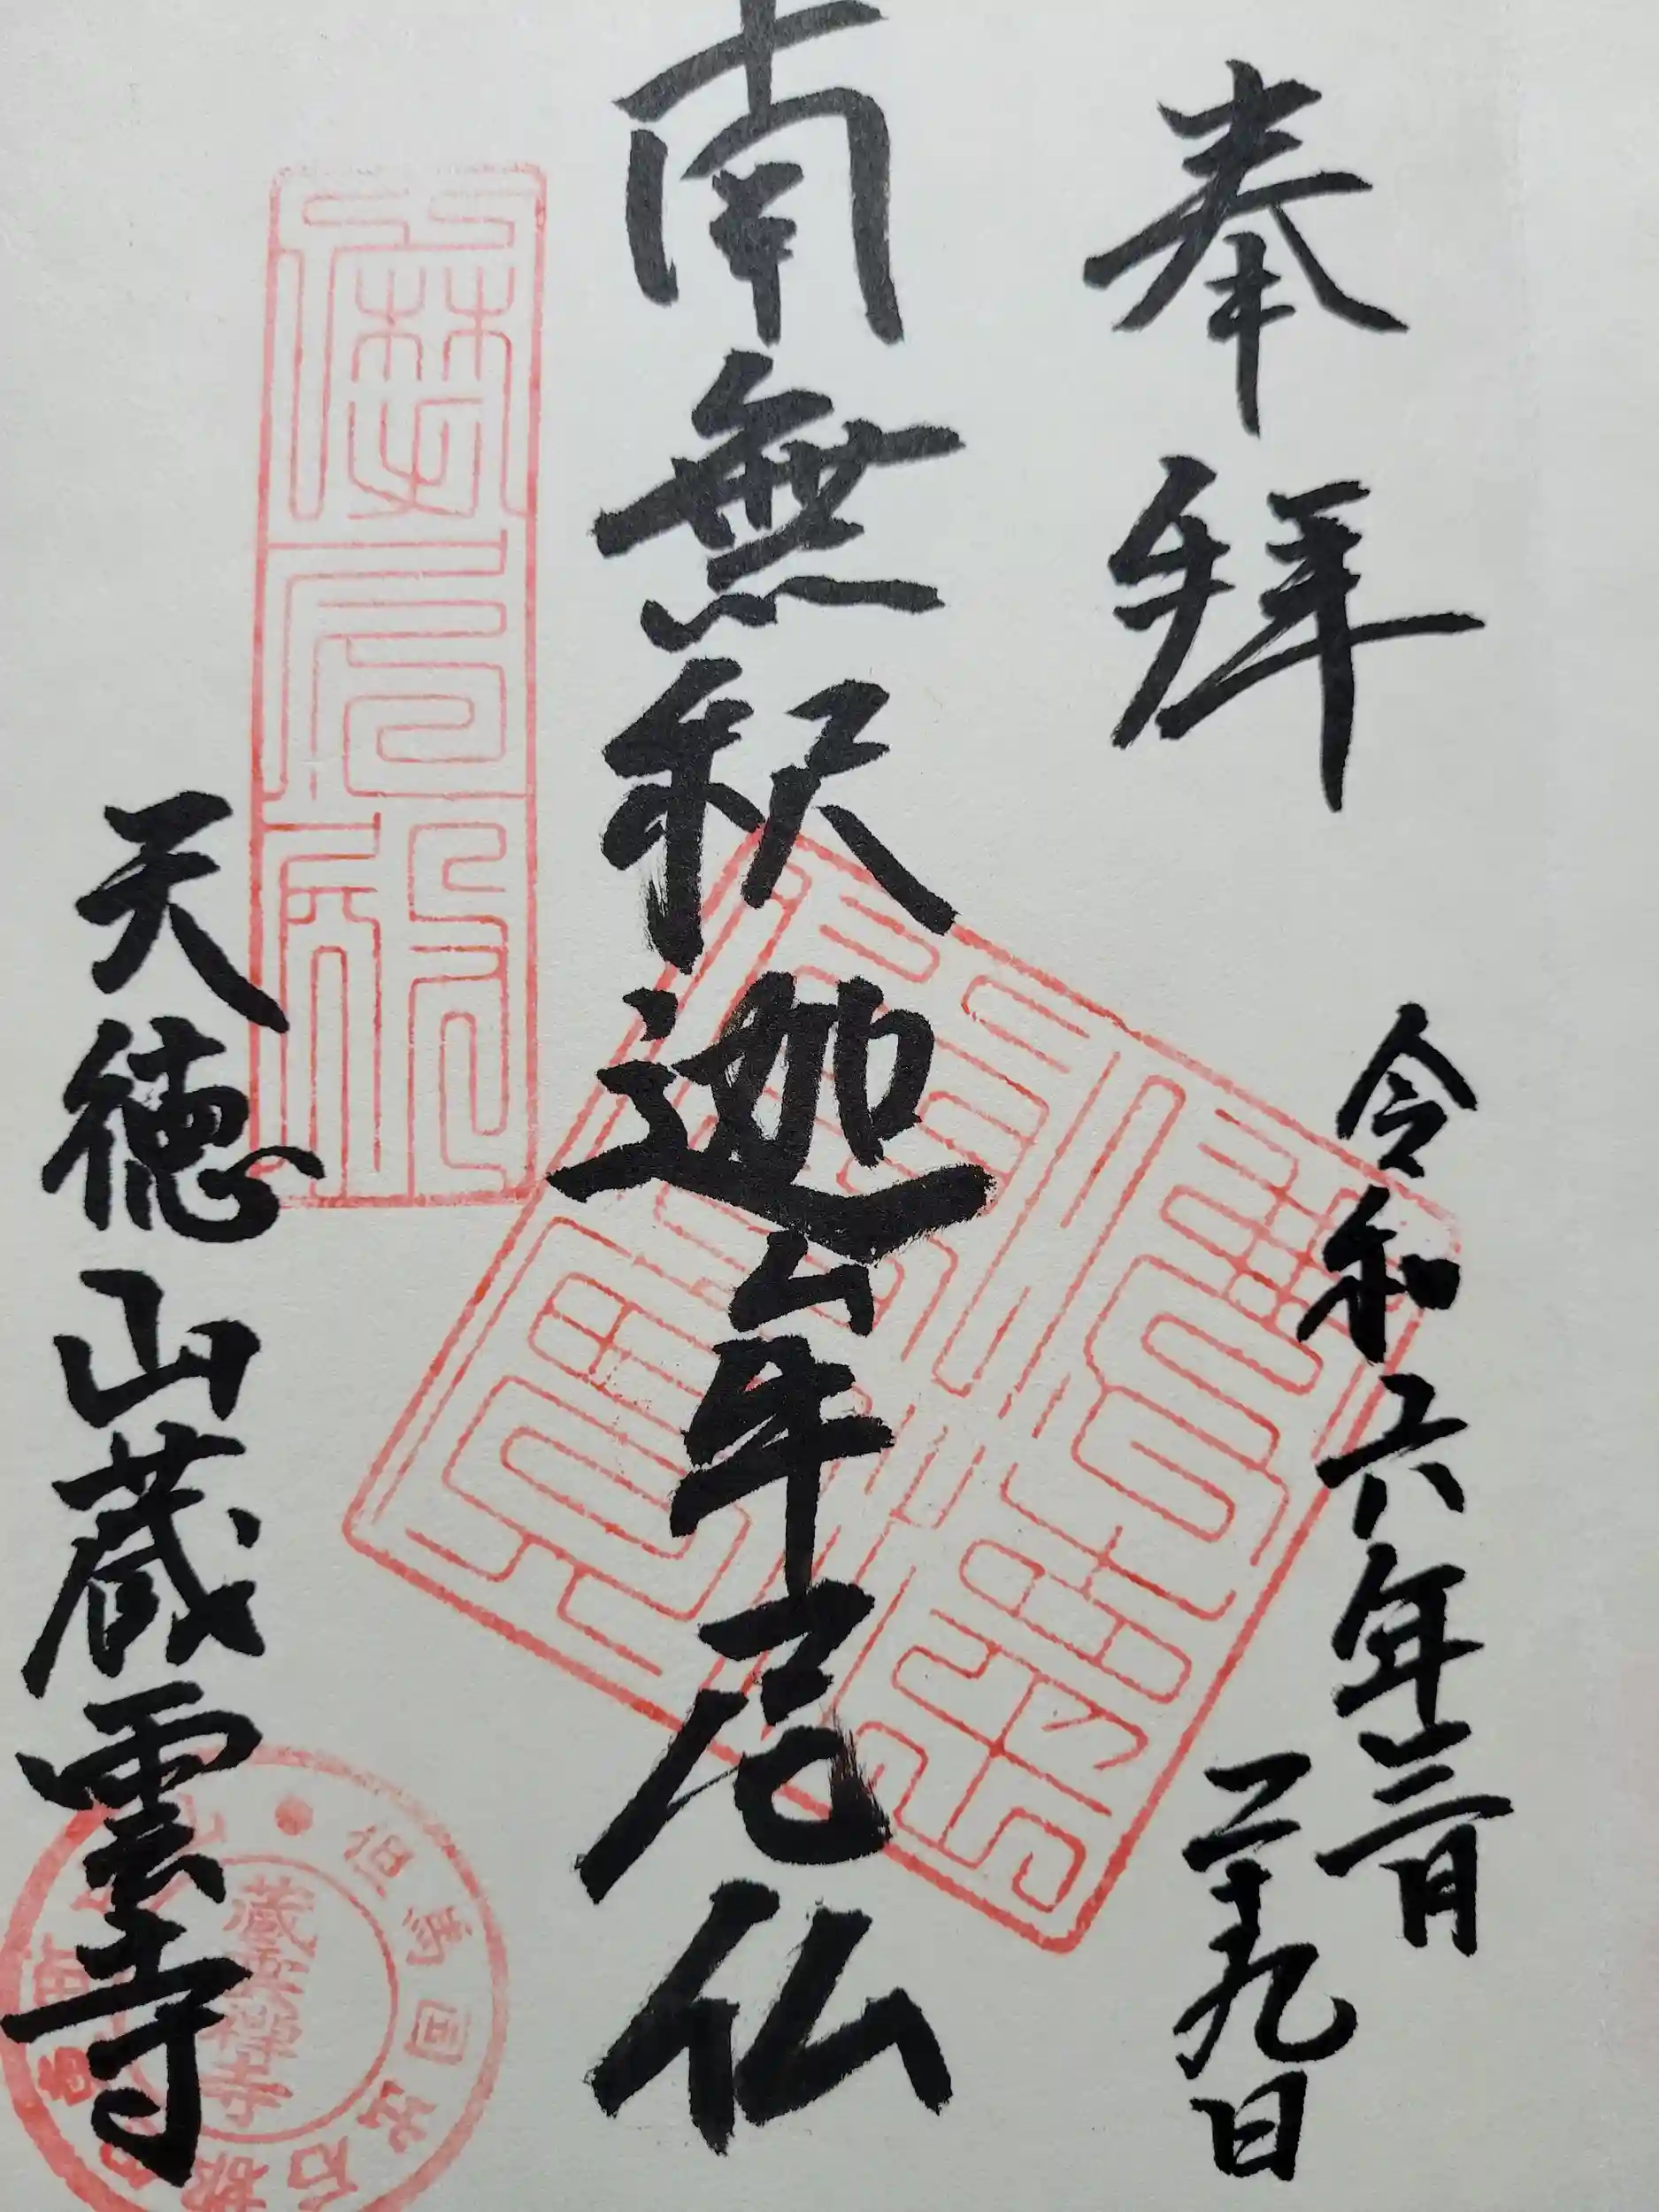 奉拝
令和六年三月
二十九日
南無釈迦牟尼仏
天徳山蔵雲寺
但馬国出石郡
蔵雲禅寺